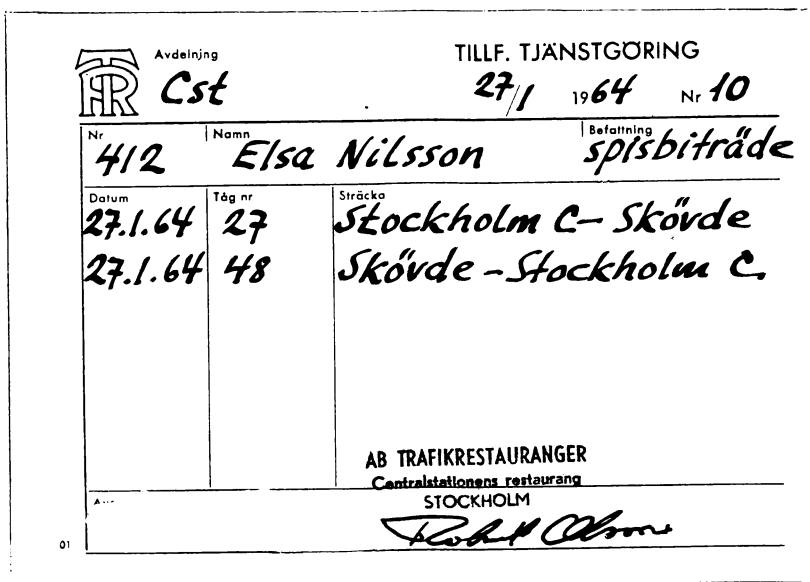 TR
Avdelning
Cst
TILLF. TJÄNSTGÖRING
27/1 1964 Nr 10
Nr Namn Befattning
412 Elsa Nilsson spisbiträde
Datum Tåg nr Sträcka
27.1.64 27 Stockholm C - Skövde
27.1.64 48 Skövde - Stockholm C.
AB TRAFIKRESTAURANGER
Centralstationens restaurang
STOCKHOLM
01